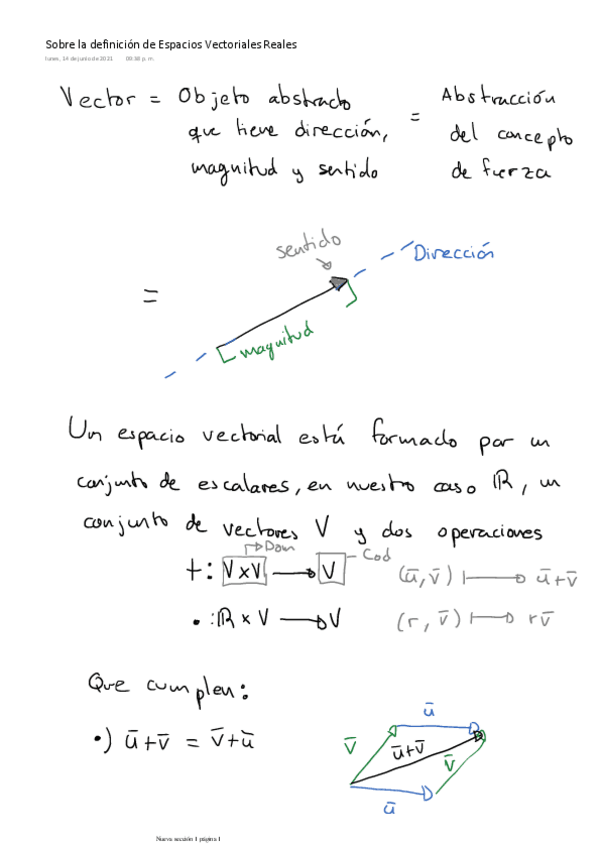 Sobre la definición de Espacios Vectoriales Reales
lunes, 14 de junio de 2021 08:38 p. m.
Vector = Objeto abstracto
que tiene dirección,
magnitud y sentido
= Abstracción
del concepto
de fuerza
sentido
Dirección
=
magnitud
Un espacio vectorial está formado por un
conjunto de escalares, en nuestro caso ℝ, un
conjunto de vectores V y dos operaciones
Dom
Cod
+: V×V → V (ū, v̄) ↦ ū+v̄
• : ℝ × V → V (r, v̄) ↦ r v̄
Que cumplen:
•) ū+v̄ = v̄+ū
ū
v̄
ū+v̄
v̄
ū
Nueva sección 1 página 1